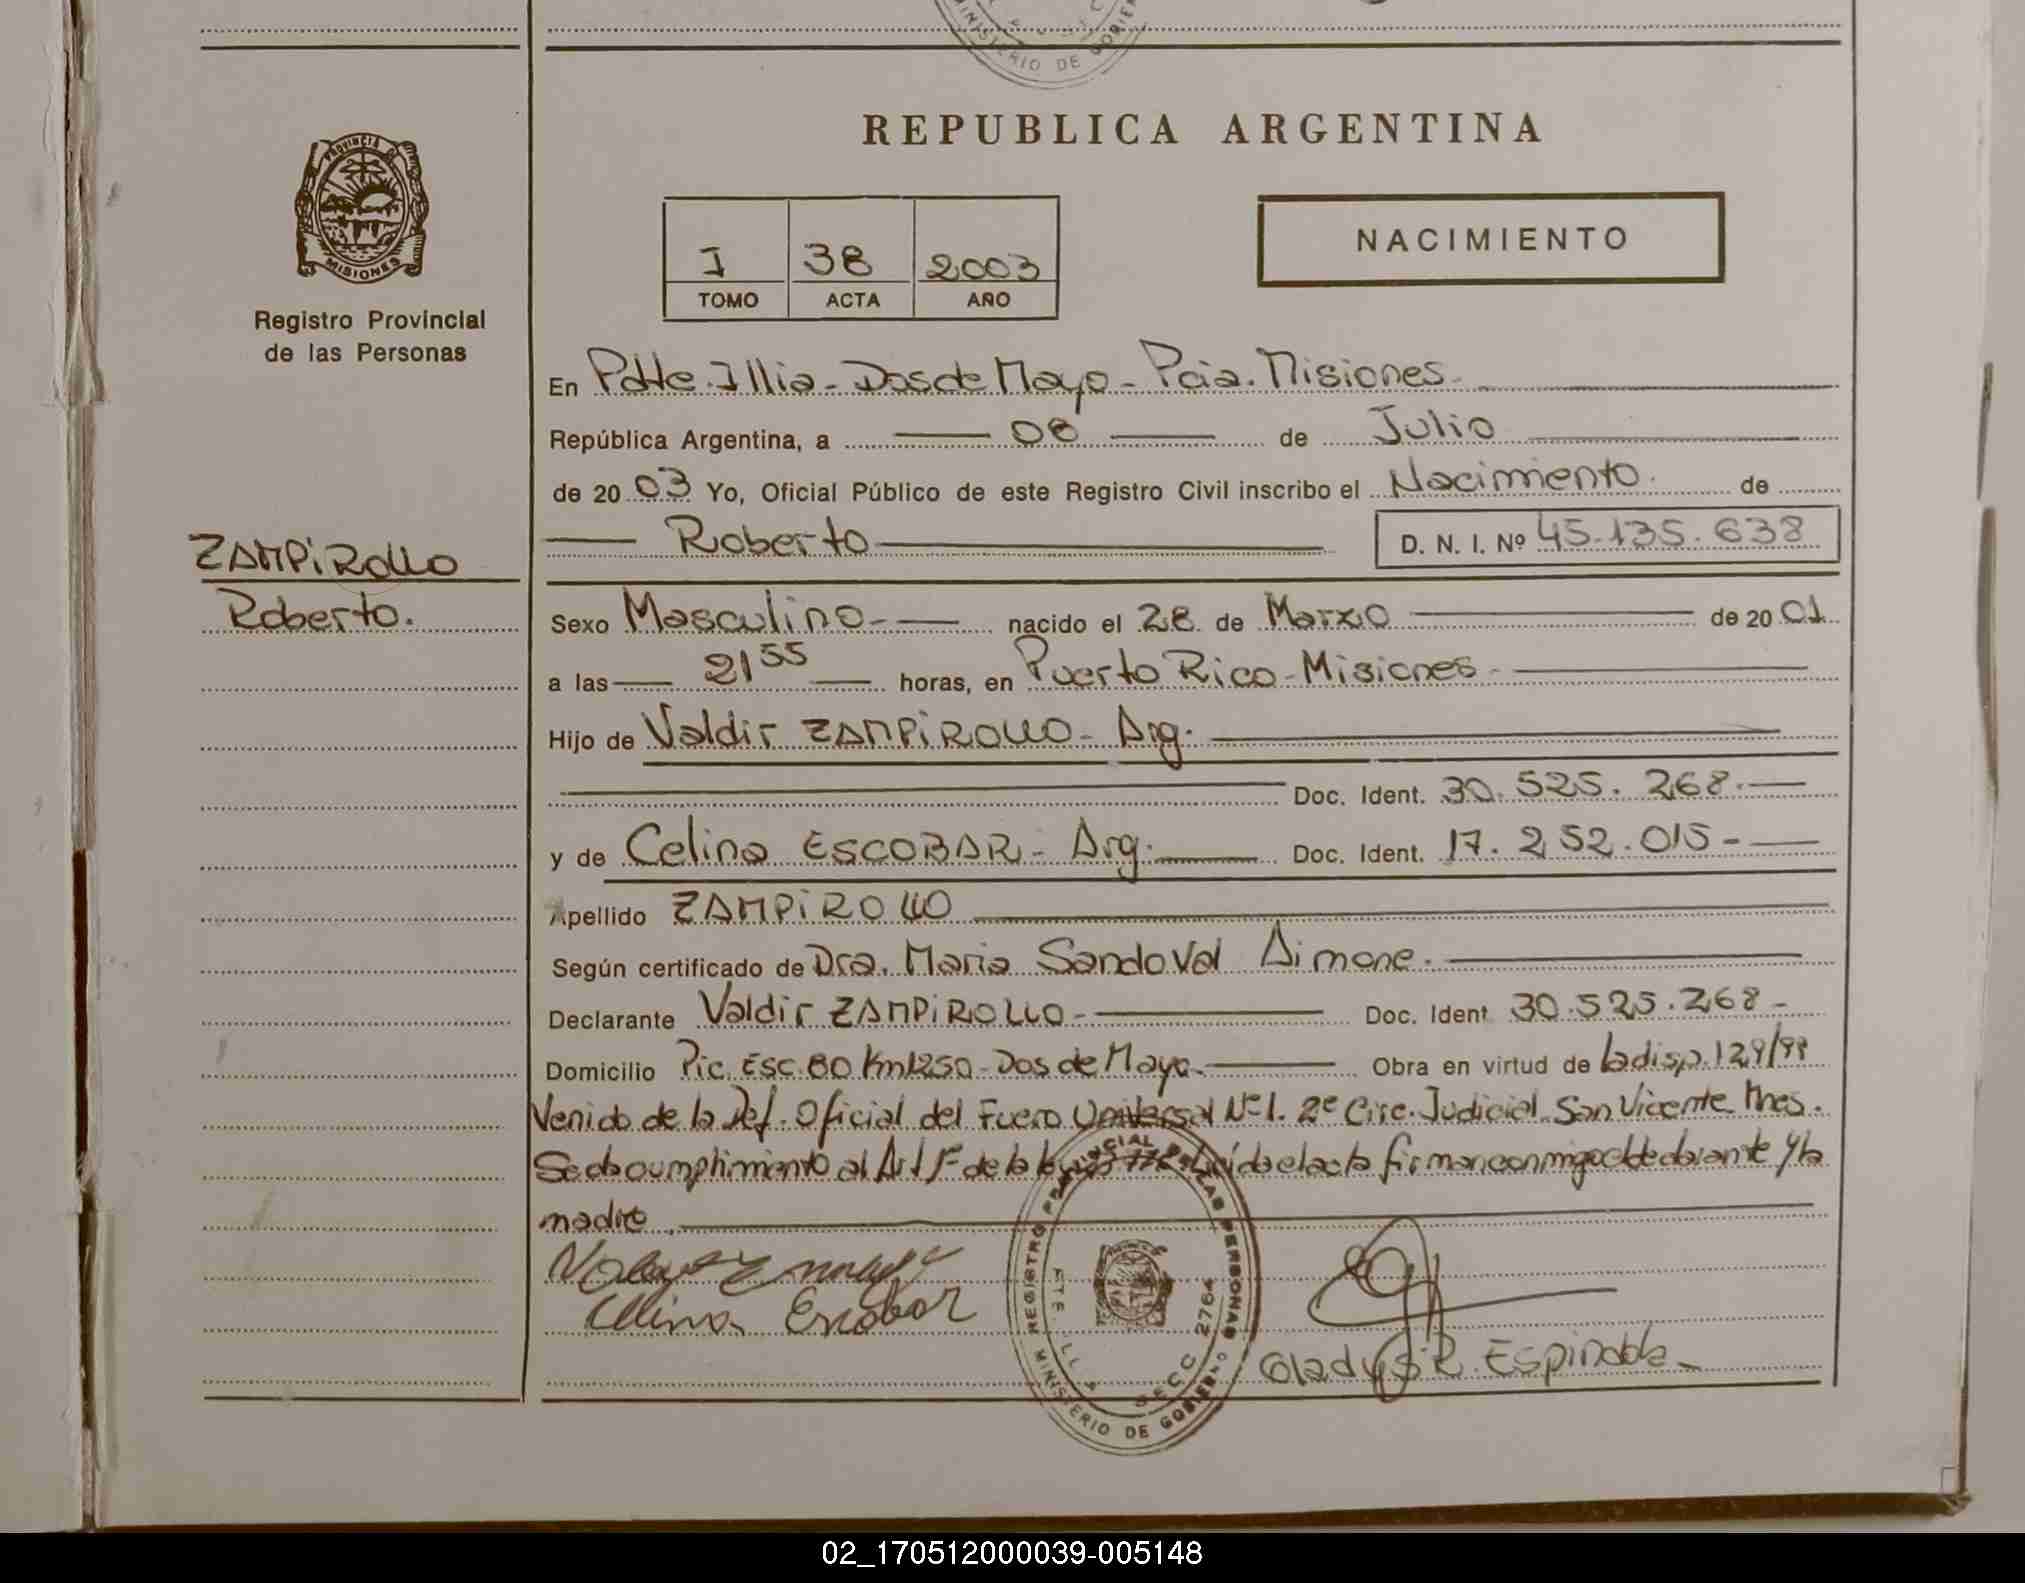 MINISTERIO DE GOBIER
REPUBLICA ARGENTINA
PROVINCIA DE
MISIONES
Registro Provincial
de las Personas
I 38 2003
TOMO ACTA AÑO
NACIMIENTO
En Pdte. Illia - Dos de Mayo - Pcia. Misiones -
República Argentina, a 08 de Julio
de 20 03 Yo, Oficial Público de este Registro Civil inscribo el Nacimiento. de
Roberto D. N. I. Nº 45.135.638
ZAMPiROLLO
Roberto.
Sexo Masculino - nacido el 28 de Marzo de 20 01
a las 21 55 horas, en Puerto Rico - Misiones -
Hijo de Valdir ZAMPiROLLO - Arg.
Doc. Ident. 30.525.268. -
y de Celina ESCOBAR - Arg. Doc. Ident. 17.252.015 -
Apellido ZAMPiROLLO
Según certificado de Dra. Maria Sandoval Aimone.
Declarante Valdir ZAMPiROLLO - Doc. Ident 30.525.268 -
Domicilio Pic. Esc. 80 Km 1250 - Dos de Mayo. Obra en virtud de la disp. 129/99
Venido de la Def. Oficial del Fuero Universal Nº 1. 2º Circ. Judicial San Vicente Mnes.
Se da cumplimiento al Art 1º de la ley Leída el acta firman conmigo el declarante y la
madre
Celina Escobar
Gladys R. Espindola -
REGISTRO PROVINCIAL DE LAS PERSONAS
MINISTERIO DE GOBIERNO
SECC 2764
02_170512000039-005148